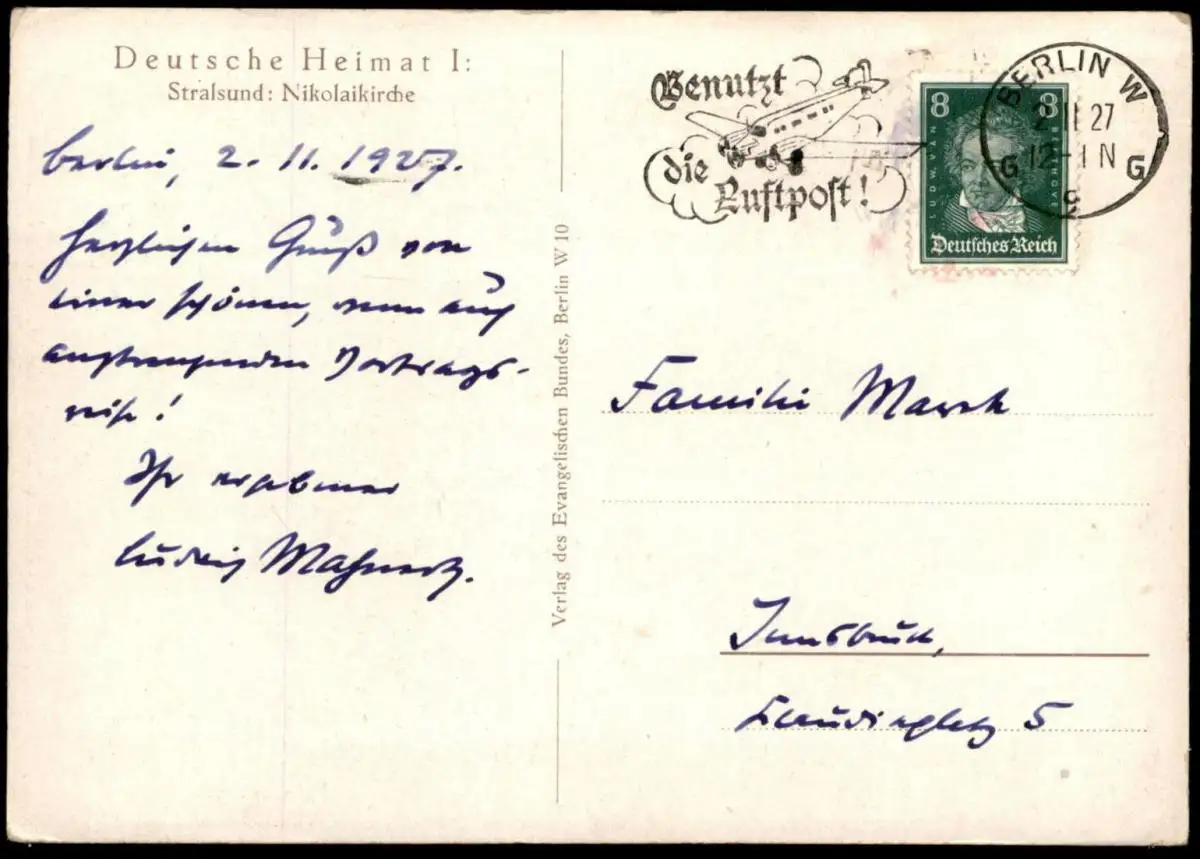 Deutsche Heimat I:
Stralsund: Nikolaikirche
Berlin, 2. 11. 1927.
Herzlichen Gruß von
einer schönen, wenn auch
anstrengenden Vortrags-
reise!
Ihr ergebener
Ludwig Mahnert.
Verlag des Evangelischen Bundes, Berlin W 10
Benutzt
die
Luftpost!
BERLIN W
2 11 27
12-1 N
G G
c
8 8
LUDW. VAN BEETHOVEN
Deutsches Reich
Familie
Innsbruck,
Claudiaplatz 5